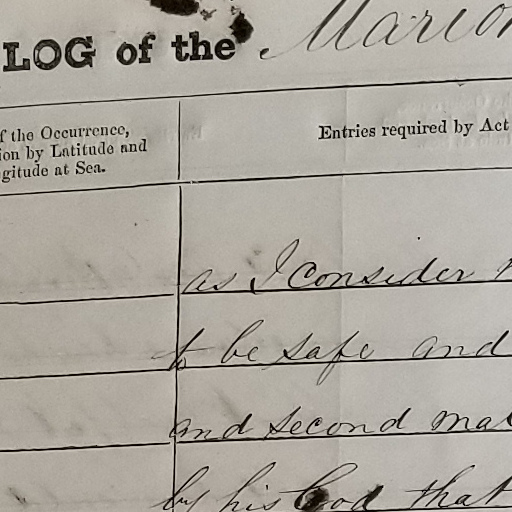 LOG of the Marion
f the Occurrence,
ion by Latitude and
gitude at Sea.
Entries required by Act
as I consider
to be safe and
and second ma
by his God that